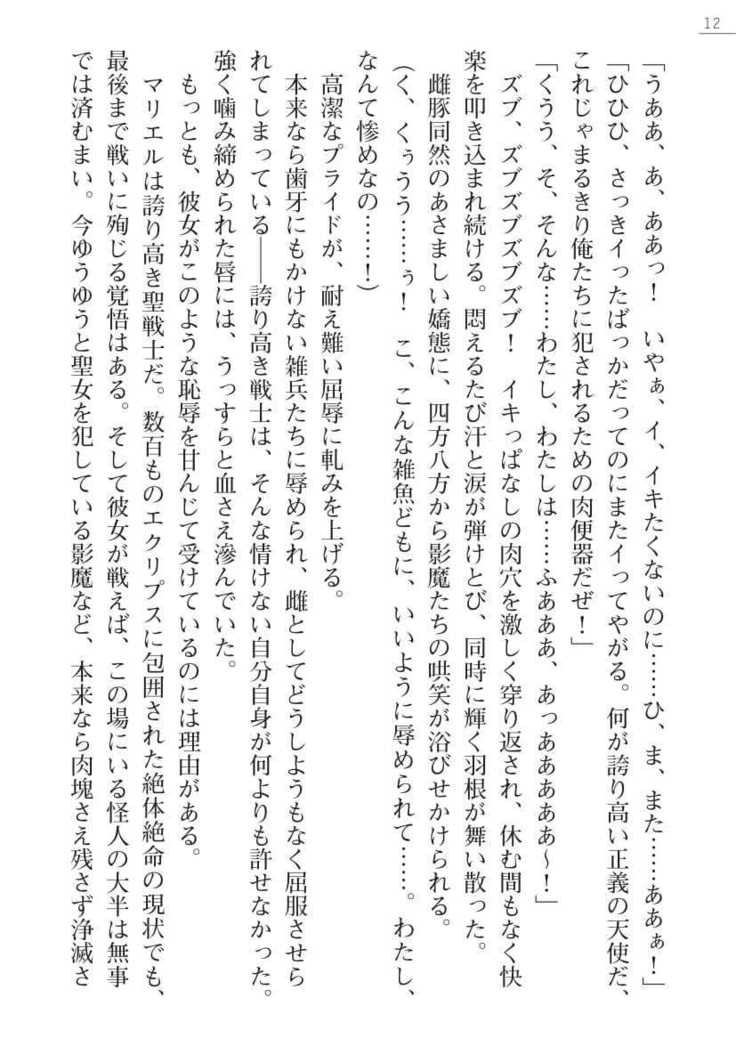 12
「うああ、あ、ああっ！　いやぁ、イ、イキたくないのに……ひ、ま、また……ああぁ！」
「ひひひ、さっきイったばっかだってのにまたイってやがる。何が誇り高い正義の天使だ、
これじゃまるきり俺たちに犯されるための肉便器だぜ！」
「くうう、そ、そんな……わたし、わたしは……ふあああ、あっああああああ～！」
　ズブ、ズブズブズブズブ！　イキっぱなしの肉穴を激しく穿り返され、休む間もなく快
楽を叩き込まれ続ける。悶えるたび汗と涙が弾けとび、同時に輝く羽根が舞い散った。
　雌豚同然のあさましい嬌態に、四方八方から影魔たちの哄笑が浴びせかけられる。
（く、くぅうう……ぅ！　こ、こんな雑魚どもに、いいように辱められて……。わたし、
なんて惨めなの……！）
　高潔なプライドが、耐え難い屈辱に軋みを上げる。
　本来なら歯牙にもかけない雑兵たちに辱められ、雌としてどうしようもなく屈服させら
れてしまっている――誇り高き戦士は、そんな情けない自分自身が何よりも許せなかった。
強く噛み締められた唇には、うっすらと血さえ滲んでいた。
　もっとも、彼女がこのような恥辱を甘んじて受けているのには理由がある。
　マリエルは誇り高き聖戦士だ。数百ものエクリプスに包囲された絶体絶命の現状でも、
最後まで戦いに殉じる覚悟はある。そして彼女が戦えば、この場にいる怪人の大半は無事
では済むまい。今ゆうゆうと聖女を犯している影魔など、本来なら肉塊さえ残さず浄滅さ